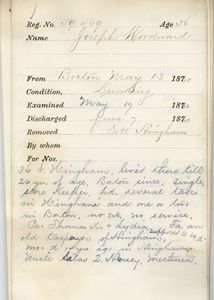 Reg. No. 59,460 Age 36
Name Joseph Woodward
From Boston May 13 1870
Condition,
Examined May 17 1870
Discharged June 7 1870
Removed Hingham
By whom
For Nos.
36 b. Hingham, lived there till
26 yrs. of age, Boston since, single,
store keeper. pd. several taxes
in Hingham and one or two
in Boston, no service,
Fa: Thomas & Lydia. Fa. an
old taxpayer of Hingham,
mo: d. yrs ago in Hingham.
Uncle Silas